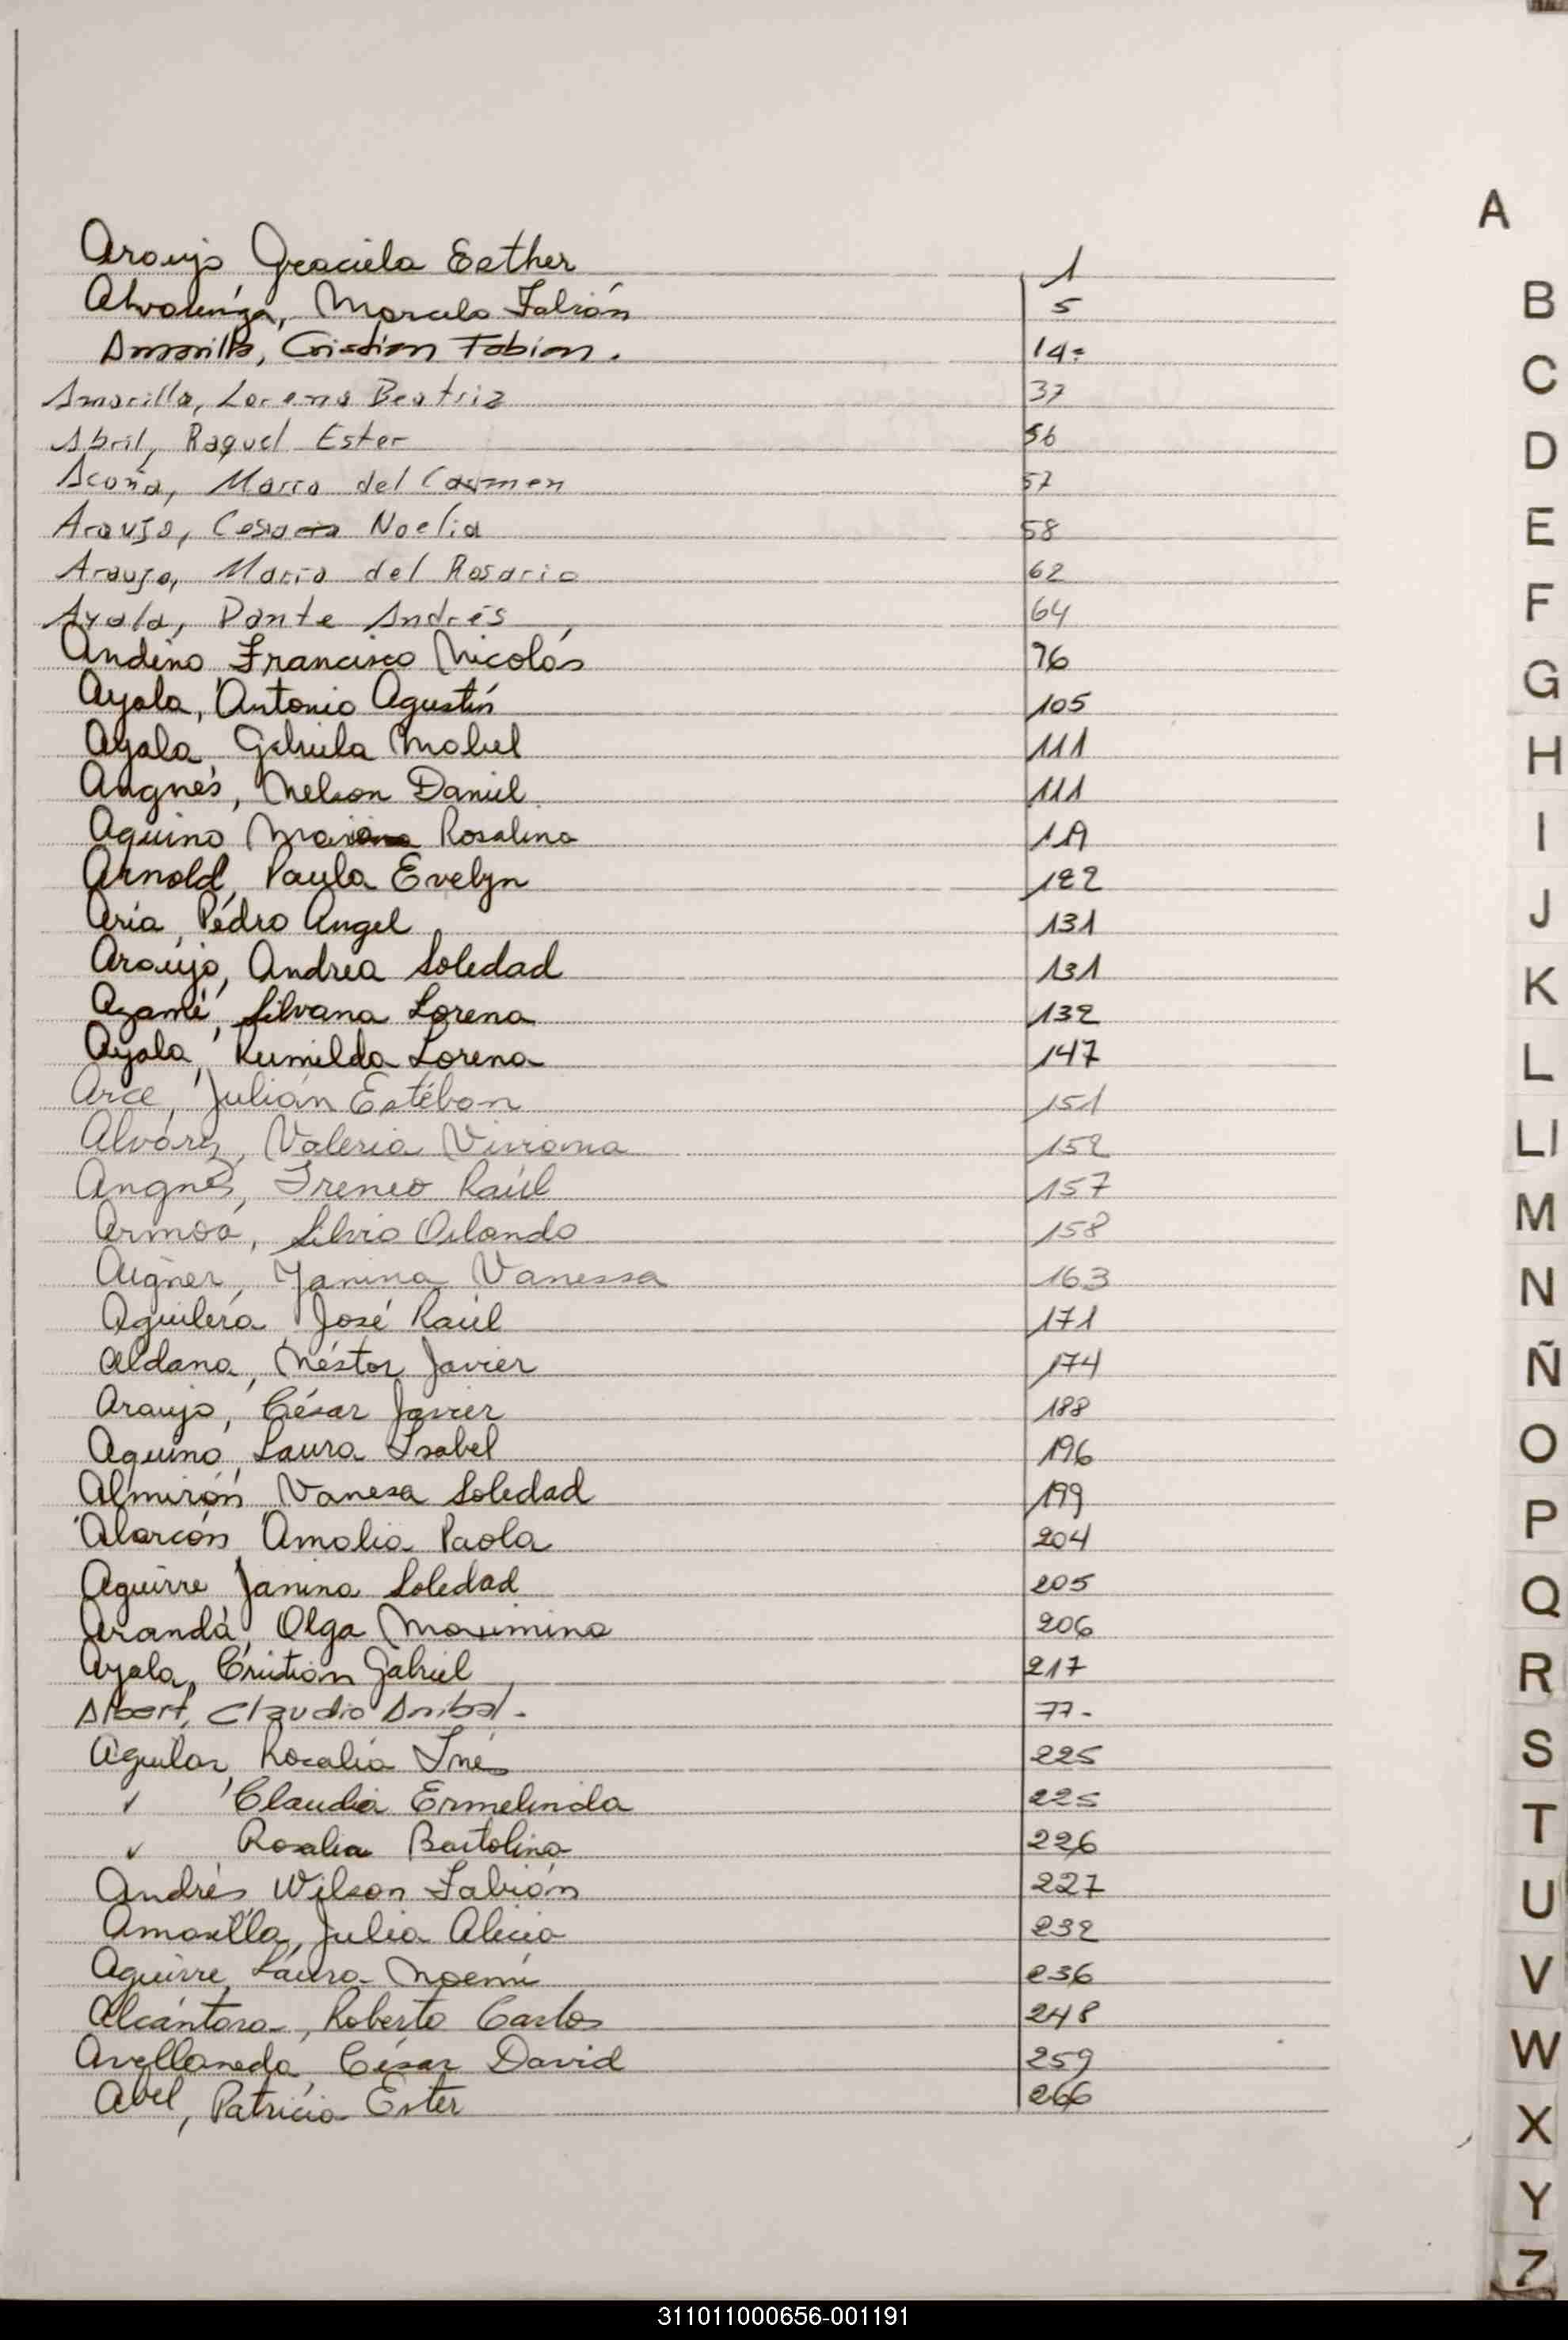 Araujo Graciela Esther 1
Alvarenga, Marcelo Fabián 5
Amarilla, Cristian Fabian. 14-
Amarilla, Lorena Beatriz 37
Abril, Raquel Ester 56
Acoña, Maria del Carmen 57
Araujo, Noelia 58
Araujo, María del Rosario 62
Ayala, Dante Andrés 64
Andino Francisco Nicolás 76
Ayala, Antonio Agustín 105
Ayala, Gabriela Mabel 111
Angnes, Nelson Daniel 111
Aquino Rosalina
Arnold, Paula Evelyn 122
Aria, Pedro Angel 131
Araujo, Andrea Soledad 131
Azamé, Silvana Lorena 132
Ayala, Rumilda Lorena 147
Arce, Julián Estéban 151
Alvarez, Valeria Viviana 152
Angnes, Ireneo Raúl 157
Armoa, Silvio Orlando 158
Aigner, Yanina Vanessa 163
Aguilera, José Raúl 171
Aldana, Néstor Javier 174
Araujo, César Javier 188
Aquino, Laura Isabel 196
Almirón Vanesa Soledad 199
Alarcón Amalia Paola 204
Aguirre Janina Soledad 205
Aranda, Olga Maximina 206
Ayala, Cristian Gabriel 217
Albert, Claudio Anibal. 77-
Aguilar, Rosalia Iné 225
✓ Claudia Ermelinda 225
✓ Rosalia Bartolina 226
Andrés Wilson Fabián 227
Amarilla, Julia Alicia 232
Aguirre, Laura Noemí 236
Alcántara, Roberto Carlos 248
Avellaneda, César David 259
Abel, Patricia Ester 266
A
B
C
D
E
F
G
H
I
J
K
L
Ll
M
N
Ñ
O
P
Q
R
S
T
U
V
W
X
Y
Z
311011000656-001191